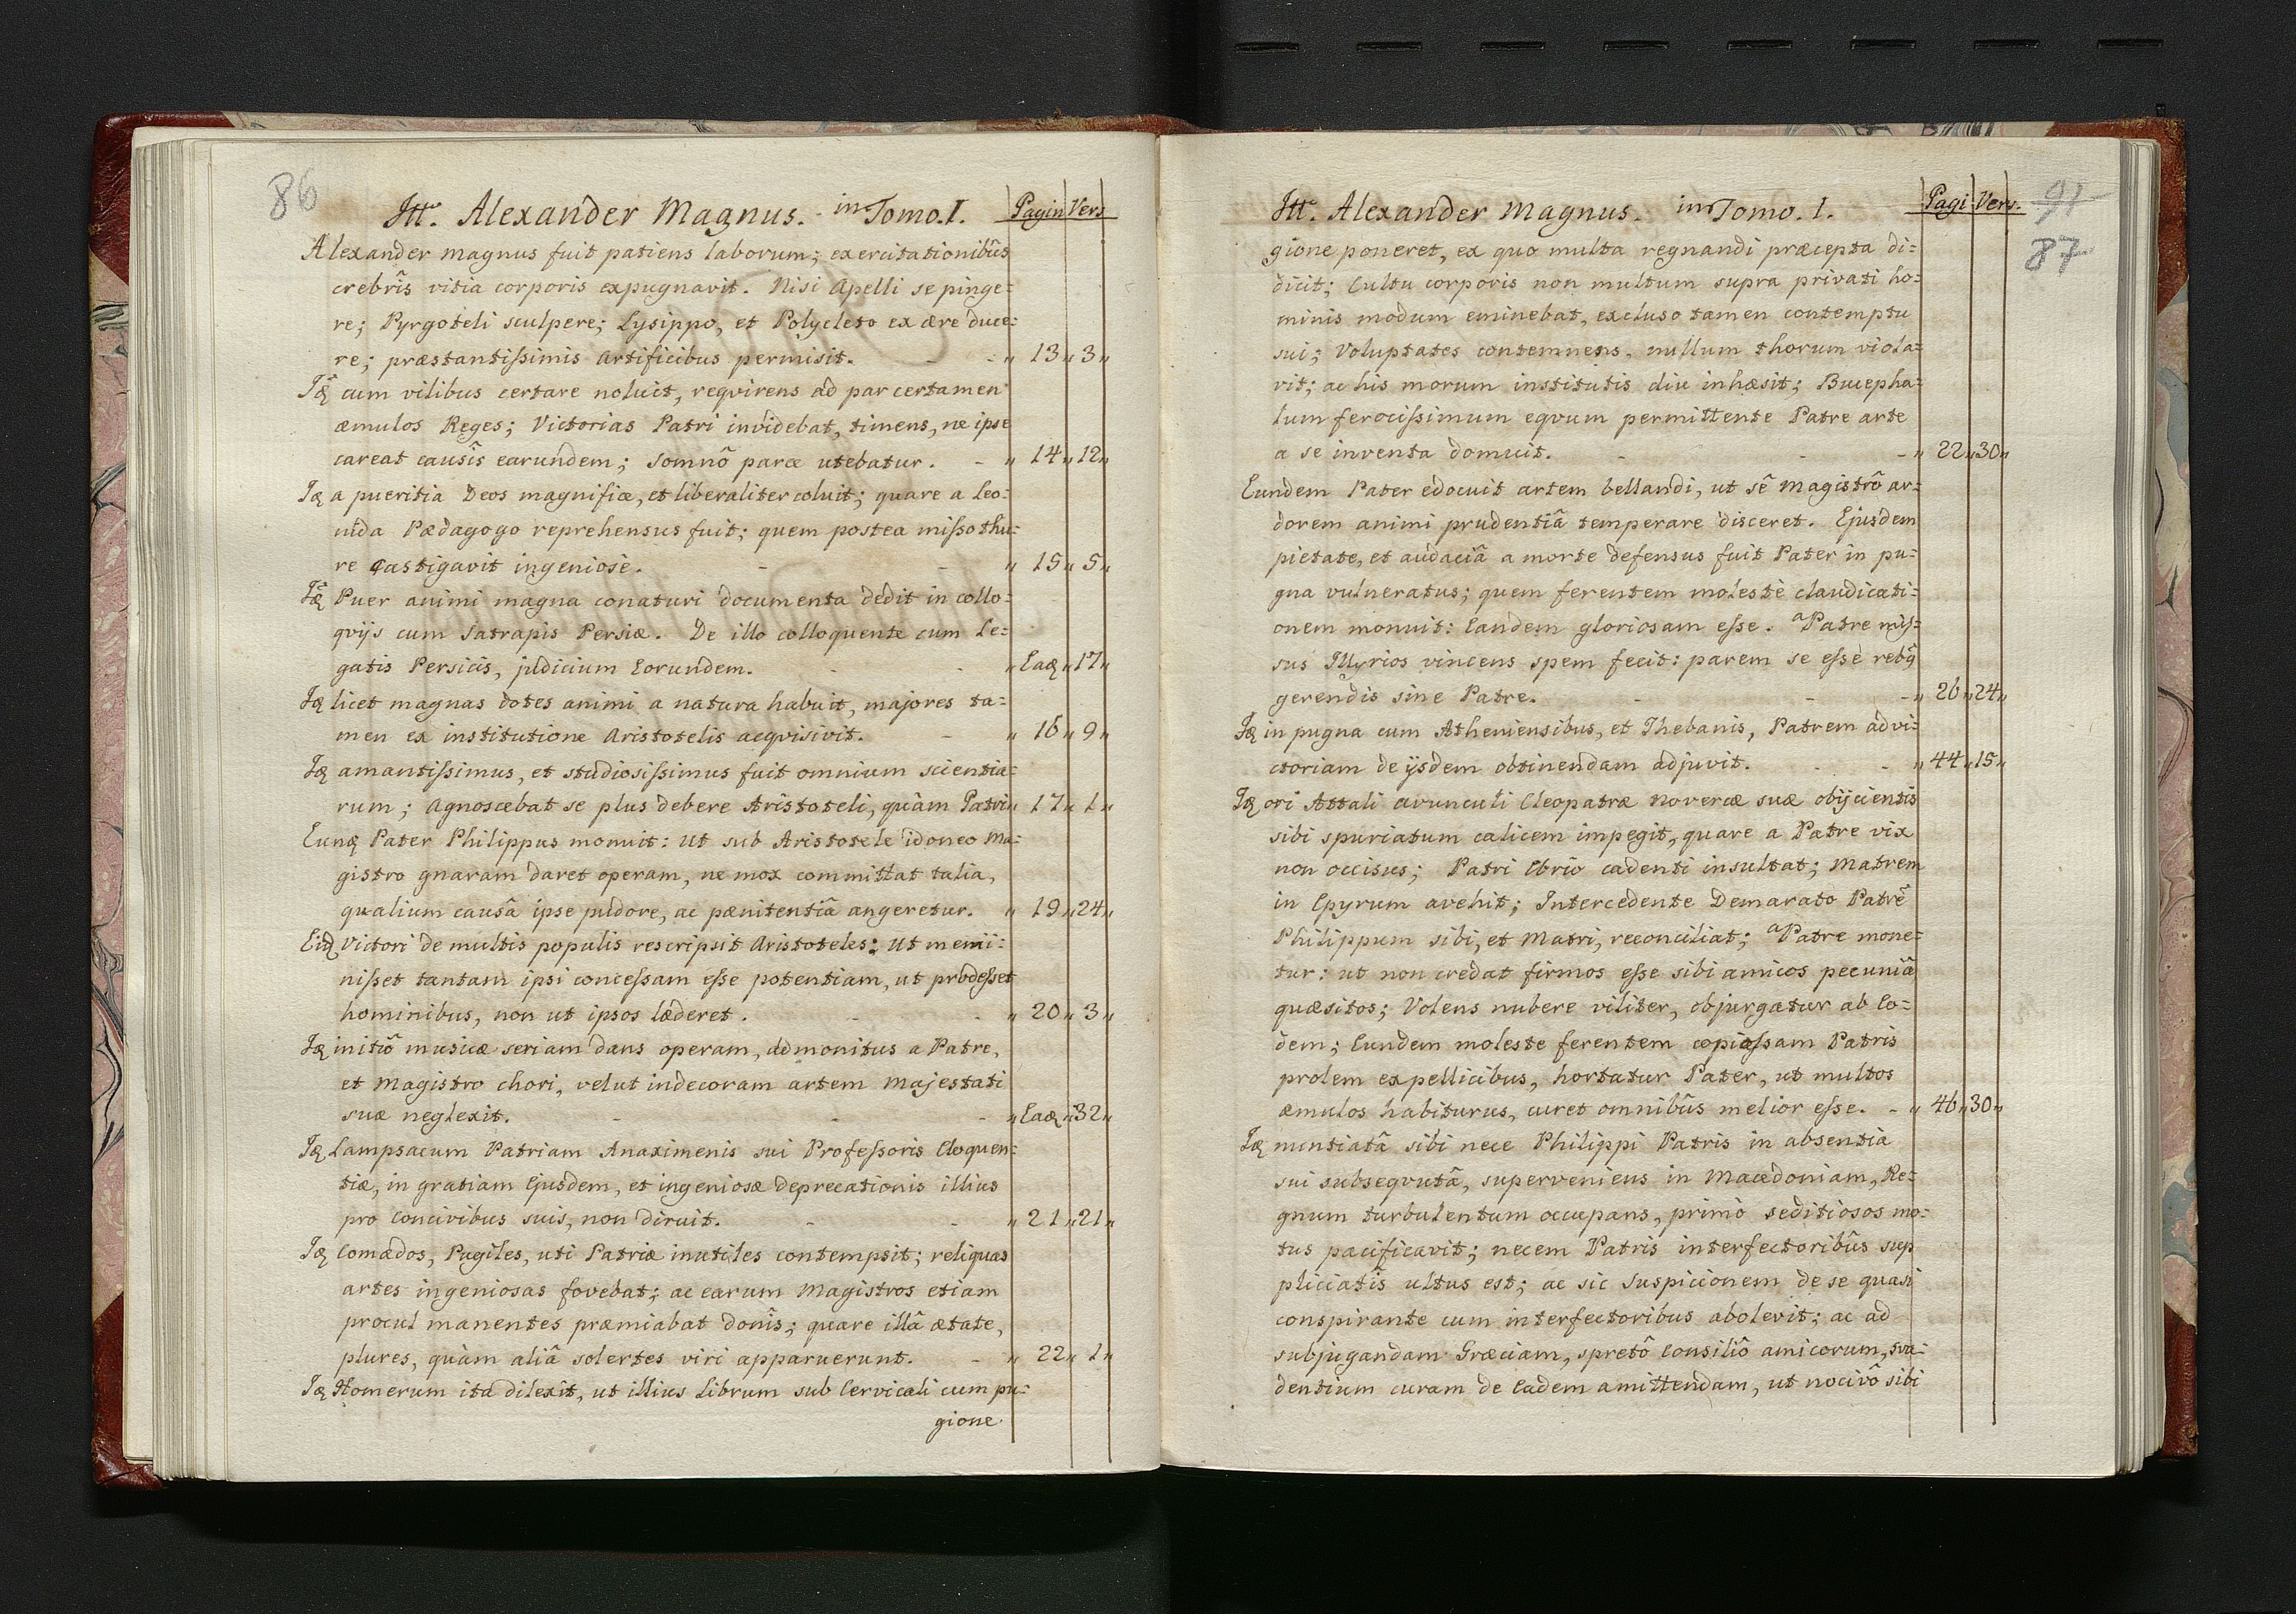 86
Itt. Alexander Magnus. in Tomo. I. Pagin Vers
Alexander Magnus fuit patiens laborum; exercitationibûs
crebrîs vitia corporis expugnavit. Nisi Apelli se pinge=
re; Pyrgoteli sculpere; Lysippo, et Polycleto ex ære duce=
re; præstantissimis Artificibus permisit. - - „ 13 „ 3 „
cum vilibus certare noluit, reqvirens ad par certamen
æmulos Reges; Victorias Patri invidebat, timens, ne ipse
careat causîs earundem; somnô parce utebatur. - „ 14 „ 12 „
a pueritia Deos magnifice, et liberaliter coluit; quare a Leo=
nida Pædagogo reprehensus fuit; quem postea misso thu=
re castigavit ingeniosè. - - „ 15 „ 5 „
Puer animi magna conaturi documenta dedit in collo=
qvijs cum Satrapis Persiæ. De illo colloquente cum Le=
gatis Persicis, judicium Eorundem. - - „ Eaq „ 17 „
licet magnas dotes animi a natura habuit, majores ta=
men ex institutione Aristotelis acqvisivit. - „ 16 „ 9 „
amantissimus, et studiosissimus fuit omnium scientia=
rum; Agnoscebat se plus debere Aristoteli, quàm Patri „ 17 „ 1 „
Pater Philippus monuit: Ut sub Aristotele idoneo Ma=
gistro gnaram daret operam, ne mox committat talia,
qualium causâ ipse pudore, ac pænitentiâ angeretur. „ 19 „ 24 „
Victori de multis populis rescripsit Aristoteles: Ut memi=
nisset tantam ipsi concessam esse potentiam, ut prodesset
hominibus, non ut ipsos læderet. - - „ 20 „ 3 „
initiô musicæ seriam dans operam, admonitus a Patre,
et Magistro chori, velut indecoram artem Majestati
suæ neglexit. - - - „ Eaq „ 32 „
Lampsacum Patriam Anaximenis sui Professoris Eloquen=
tiæ, in gratiam Ejusdem, et ingeniosæ deprecationis illius
pro Concivibus suis, non diruit. - - „ 21 „ 21 „
Comædos, Pugiles, uti Patriæ inutiles contempsit; reliquas
artes ingeniosas fovebat; ac earum Magistros etiam
procul manentes præmiabat donîs; quare illâ ætate,
plures, quàm aliâ solertes viri apparuerunt. - „ 22 „ 1 „
Homerum ita dilexit, ut illius Librum sub Cervicali cum pu=
gione
Itt. Alexander Magnus. in Tomo. I. Pagi Vers.
91
87
gione poneret, ex quo multa regnandi præcepta di=
dicit; Cultu corporis non multum supra privati ho=
minis modum eminebat, excluso tamen contemptu
sui; Voluptates contemnens, nullum thorum viola=
vit; ac his morum institutis diu inhæsit; Bucepha=
lum ferocissimum eqvum permittente Patre arte
a se inventa domuit. - - - „ 22 „ 30 „
Eundem Pater edocuit artem bellandi, ut sê Magistrô ar=
dorem animi prudentiâ temperare disceret. Ejusdem
pietate, et audaciâ a morte defensus fuit Pater in pu=
gna vulneratus; quem ferentem molestè claudicati=
onem monuit: Eandem gloriosam esse. a Patre mis=
sus Illyrios vincens spem fecit: parem se esse rebq
gerendis sine Patre. - - - „ 26 „ 24 „
in pugna cum Atheniensibus, et Thebanis, Patrem ad vi=
ctoriam de ijsdem obtinendam adjuvit. - - „ 44 „ 15 „
ori Attali avunculi Cleopatræ Novercæ suæ obijcientis
sibi spuriatum calicem impegit, quare a Patre vix
non occisus; Patri Ebrio cadenti insultat; Matrem
in Epyrum avehit; Intercedente Demarato Patrê
Philippum sibi, et Matri, reconciliat; a Patre mone=
tur: ut non credat firmos esse sibi amicos pecuniâ
quæsitos; Volens nubere viliter, objurgatur ab Eo=
dem; Eundem moleste ferentem copiossam Patris
prolem ex pellicibus, hortatur Pater, ut multos
æmulos habiturus, curet omnibûs melior esse. - „ 46 „ 30 „
nuntiatâ sibi nece Philippi Patris in absentia
sui subseqvutâ, superveniens in Macedoniam, Re=
gnum turbulentum occupans, primò seditiosos mo=
tus pacificavit; necem Patris interfectoribûs sup
pliciatîs ultus est; ac sic suspicionem de se quasi
conspirante cum interfectoribus abolevit; ac ad
subjugandam Græciam, spretô Consiliô amicorum, sva=
dentium curam de Eadem amittendam, ut nocivô sibi